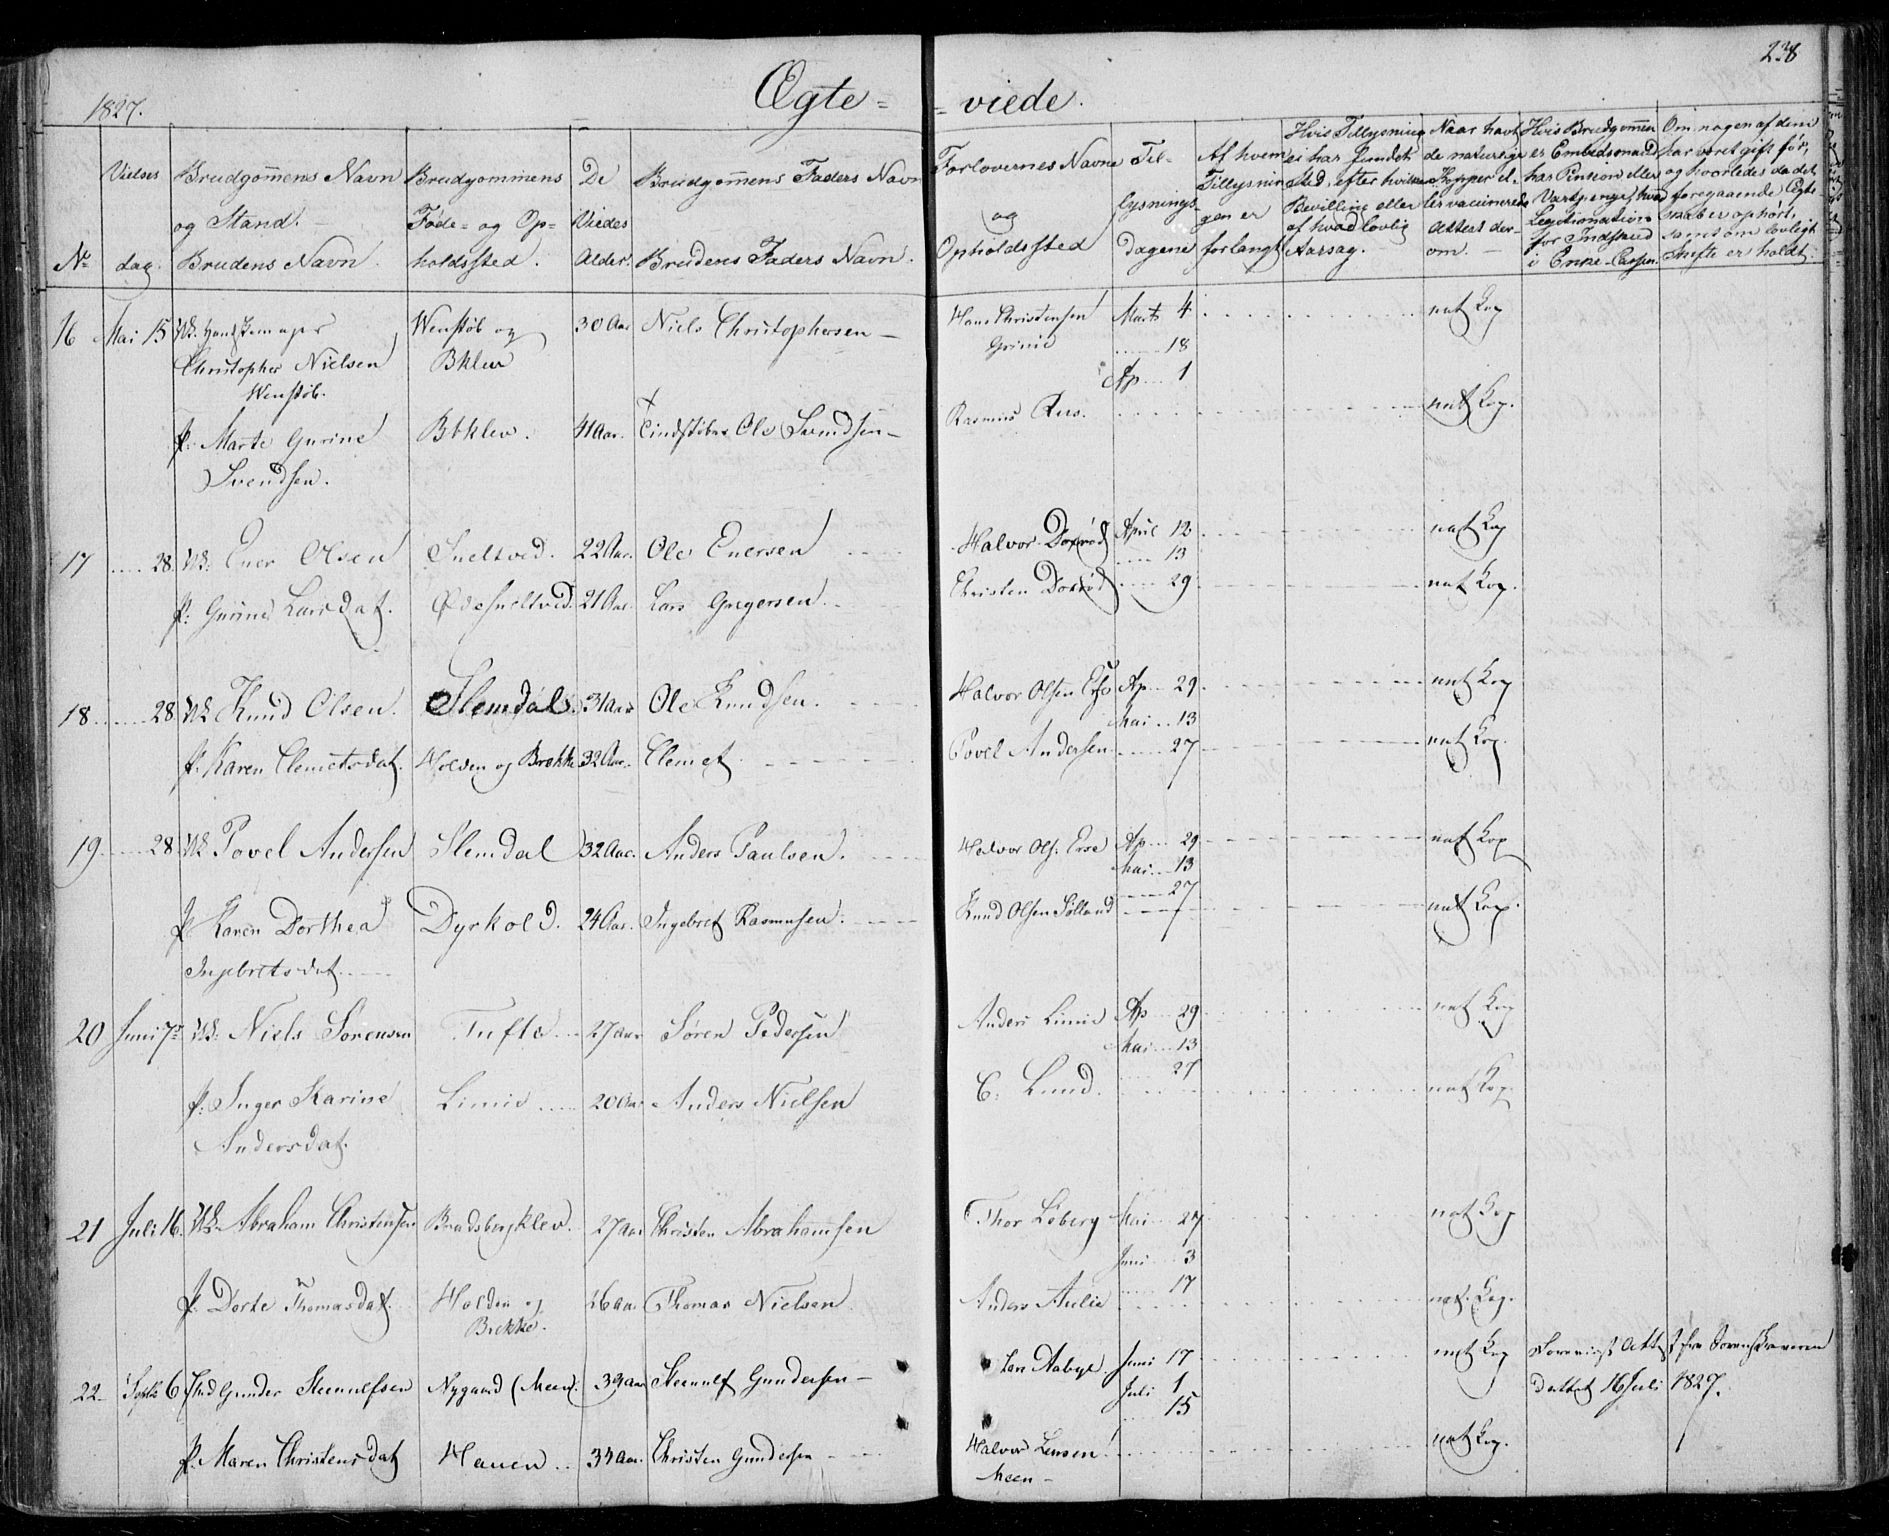 238
1827.
Ægte= =viede.
No
Vielses dag.
Brudgommens Navn og Stand. Brudens Navn.
Brudgommens Føde= og Op=holdssted.
De Viedes Alder.
Brudgommens Faders Navn Brudens Faders Navn.
Forlovernes Navne og Opholdssted
Til-lysnings Dagene
Af hvem Tillysningen er forlangt
Hvis Tillysning ei har fundet Sted, efter hvilken Bevilling eller af hvad lovlig Aarsag.
Naar havt de naturlige Kopper el-ler vaccinerede Attest der-om.
Hvis Brudgommen er Embedsmand har Pension eller Vartpenge, hvad Legitimation for Indskud i Enke-Cassen.
Om nogen af dem har været gift før, og hvorledes da det foregaaende Ægteskab er ophørt, samt om lovligt Skifte er holdt.
16 Mai 15 Christopher Nielsen Wenstøb. Wenstøb og Bklev 30 Aar Niels Christophersen Hans Christensen Marts 4 nat Kop
18
Ap 1
p: Marte Gurine Svendsen. Bbklev. 41 Aar. Ole Svendsen Rasmus nat Kop.
17 28 Ener Olsen Sneltved. 22 Aar. Ole Enersen Halvor April 12 nat Kop
13
p: Gurine Larsdat. Ødesneltved. 21 Aar. Lars Gregersen. Christen 29 nat Kop.
18 28 Knud Olsen. Slemdal 31 Aar Ole Knudsen. Halvor Olsen Ap 29 nat Kop
Mai 13
p. Karen Clemetsdat. Holden og Brekke 32 Aar. Clemet Povel Andersen 27 nat Kop.
19 28 Povel Andersen Slemdal 32 Aar. Anders Paulsen. Halvor Ols. Erse Ap 29 nat Kop
Mai 13
27
p Karen Dorthea Ingebretsdat. Dyrkold. 24 Aar. Ingebret Rasmusen. Knud Olsen Solland nat Kop.
20 Juni 7 Niels Sørensen Tufte 27 aar Søren Pedersen Anders Limie Ap 29 nat Kop
Mai 13
27
p: Inger Karine Andersdat. Limie 20 Aar Anders Nielsen C. Lund. nat Kop.
21 Juli 16. Abraham Christensen Bradsbergklev. 27 Aar Christen Abrahamsen Thor Løberg Mai 27 nat Kop
Juni 3
17
p. Dorte Thomasdat. Holden og Brekke. 26 aar Thomas Nielsen. Anders Aulie nat. Kop.
22 6 Gunder Steenulfsen Nygaard (Meen). 39 aar Steenulf Gundersen Juni 17 nat Kop
Juli 1 dattet 16 Juli 1827.
15
p. Maren Christensdat Haven 33 Aar. Christen Gundersen Halvor Jensen Meen nat Kop.